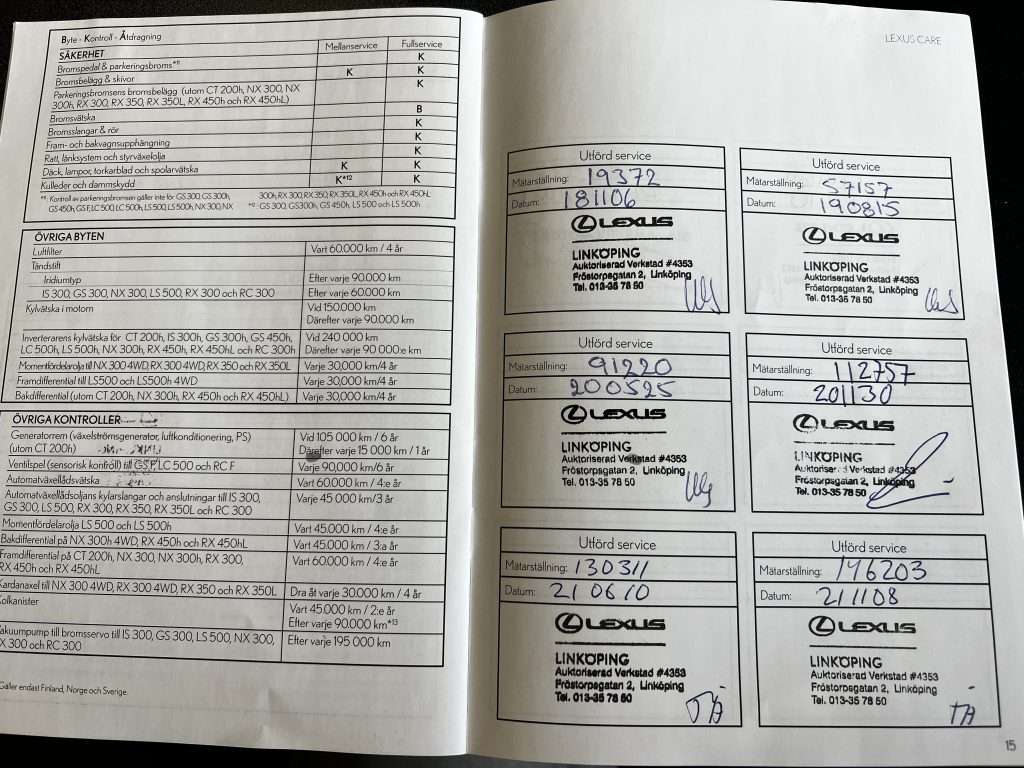 Byte - Kontroll - Åtdragning
Mellanservice Fullservice
SÄKERHET
Bromspedal & parkeringsbroms*11 K
Bromsbelägg & skivor K K
Parkeringsbromsens bromsbelägg (utom CT 200h, NX 300, NX K
300h, RX 300, RX 350, RX 350L, RX 450h och RX 450hL)
Bromsvätska B
Bromsslangar & rör K
Fram- och bakvagnsupphängning K
Ratt, länksystem och styrväxelolja K
Däck, lampor, torkarblad och spolarvätska K K
Kulleder och dammskydd K*12 K
*11: Kontroll av parkeringsbromsen gäller inte för GS 300, GS 300h,
GS 450h, GS F, LC 500, LC 500h, LS 500, LS 500h, NX 300, NX
300h, RX 300, RX 350, RX 350L, RX 450h och RX 450hL
*12: GS 300, GS300h, GS 450h, LS 500 och LS 500h
ÖVRIGA BYTEN
Luftfilter Vart 60.000 km / 4 år
Tändstift
Iridiumtyp Efter varje 90.000 km
IS 300, GS 300, NX 300, LS 500, RX 300 och RC 300 Efter varje 60.000 km
Kylvätska i motorn Vid 150.000 km
Därefter varje 90.000 km
Inverterarens kylvätska för CT 200h, IS 300h, GS 300h, GS 450h, Vid 240 000 km
LC 500h, LS 500h, NX 300h, RX 450h, RX 450hL och RC 300H Därefter varje 90 000:e km
Momentfördelarolja till NX 300 4WD, RX 300 4WD, RX 350 och RX 350L Varje 30,000 km/4 år
Framdifferential till LS500 och LS500h 4WD Varje 30,000 km/4 år
Bakdifferential (utom CT 200h, NX 300h, RX 450h och RX 450hL) Varje 30,000 km/4 år
ÖVRIGA KONTROLLER
Generatorrem (växelströmsgenerator, luftkonditionering, PS) Vid 105 000 km / 6 år
(utom CT 200h) Därefter varje 15 000 km / 1 år
Ventilspel (sensorisk kontroll) till GS F, LC 500 och RC F Varje 90,000 km/6 år
Automatväxellådsvätska Vart 60.000 km / 4:e år
Automatväxellådsoljans kylarslangar och anslutningar till IS 300, Varje 45 000 km/3 år
GS 300, LS 500, RX 300, RX 350, RX 350L och RC 300
Momentfördelarolja LS 500 och LS 500h Vart 45.000 km / 4:e år
Bakdifferential på NX 300h 4WD, RX 450h och RX 450hL Vart 45.000 km / 3:a år
Framdifferential på CT 200h, NX 300, NX 300h, RX 300, Vart 60.000 km / 4:e år
RX 450h och RX 450hL
Kardanaxel till NX 300 4WD, RX 300 4WD, RX 350 och RX 350L Dra åt varje 30.000 km / 4 år
Kolkanister Vart 45.000 km / 2:e år
Efter varje 90.000 km*13
Vakuumpump till bromsservo till IS 300, GS 300, LS 500, NX 300, Efter varje 195 000 km
RX 300 och RC 300
Gäller endast Finland, Norge och Sverige.
LEXUS CARE
Utförd service
Mätarställning: 19372
Datum: 181106
LEXUS
LINKÖPING
Auktoriserad Verkstad #4353
Fröstorpsgatan 2, Linköping
Tel. 013-35 78 50
Utförd service
Mätarställning: 57157
Datum: 190815
LEXUS
LINKÖPING
Auktoriserad Verkstad #4353
Fröstorpsgatan 2, Linköping
Tel. 013-35 78 50
Utförd service
Mätarställning: 91220
Datum: 200525
LEXUS
LINKÖPING
Auktoriserad Verkstad #4353
Fröstorpsgatan 2, Linköping
Tel. 013-35 78 50
Utförd service
Mätarställning: 112757
Datum: 201130
LEXUS
LINKÖPING
Auktoriserad Verkstad #4353
Fröstorpsgatan 2, Linköping
Tel. 013-35 78 50
Utförd service
Mätarställning: 130311
Datum: 210610
LEXUS
LINKÖPING
Auktoriserad Verkstad #4353
Fröstorpsgatan 2, Linköping
Tel. 013-35 78 50
Utförd service
Mätarställning: 146203
Datum: 211108
LEXUS
LINKÖPING
Auktoriserad Verkstad #4353
Fröstorpsgatan 2, Linköping
Tel. 013-35 78 50
15